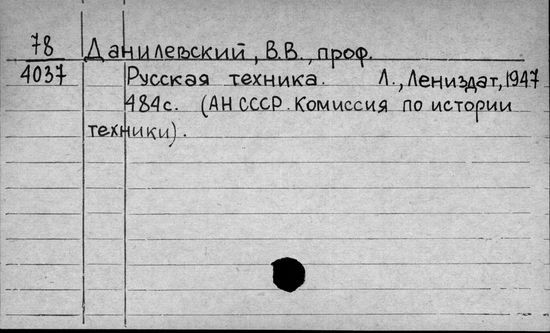 78 Данилевский, В.В., проф.
4037 Русская техника. Л., Лениздат, 1947
484с. (АН СССР. Комиссия по истории
техники).